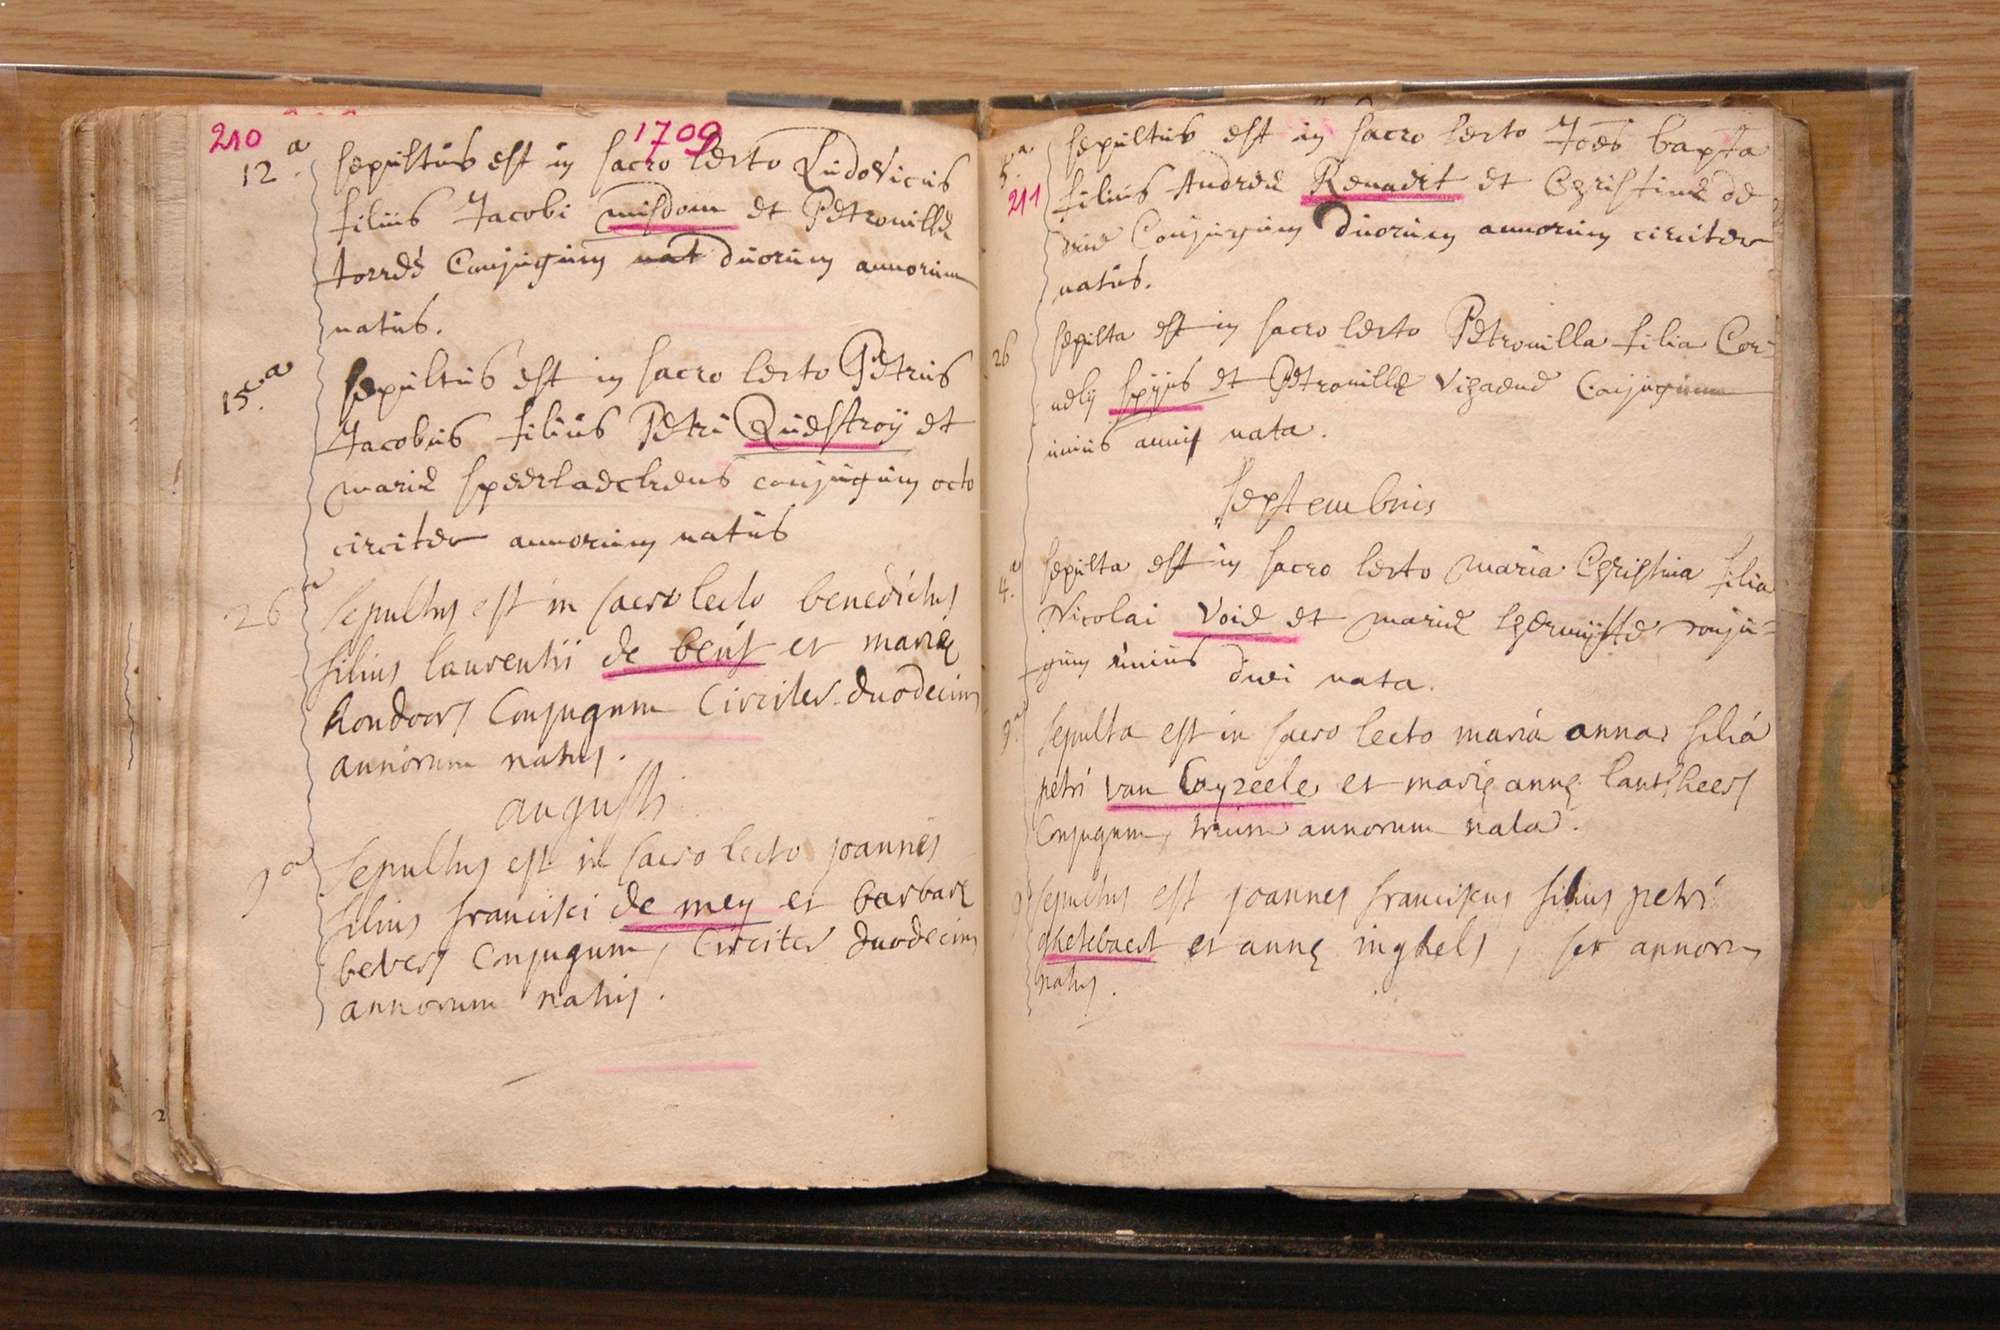 210
1709
12.a sepultus est in sacro lecto Ludovicus
filius Jacobi misdom et Petronillę
torreé Conjugum nat duorum annorum
natus.
15.a sepultus est in sacro lecto Petrus
Jacobus filius Petri Questroÿ et
marie speerlaeckens conjugum octo
circiter annorum natus
26a sepultus est in sacro lecto benedictus
filius laurentii de beus et marię
hondoors Conjugum Circiter duodecim
annorum natus.
augusti
9a sepultus est in sacro lecto joannes
filius francisci de mey et barbarę
bevers Conjugum, Circiter duodecim
annorum natus.
2
5a sepultus est in sacro lecto Joes bapta
211 filius Andreę Renaert et Christinę de
Conjugum duorum annorum circiter
natus.
26 sepulta est in sacro lecto Petronilla filia Cor-
nelÿ spÿus et Petronillę Conjugum
unius anni nata.
septembris
4.a sepulta est in sacro lecto maria Christina filia
Nicolai Voie et marię conju-
gum unius diei nata.
9a sepulta est in sacro lecto maria anna filia
petri van Cayzeele et marię annę lantsheers
Conjugum, trium annorum nata.
9 sepultus est joannes franciscus filius petri
ghetebaert et annę inghels, sex annorum
natus.